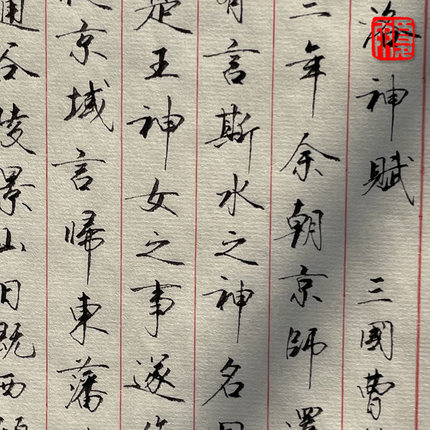 神賦 三國曹
年余朝京師還
有言斯水之神名
王神女之事遂
京域言歸東藩
通谷陵景山日既西